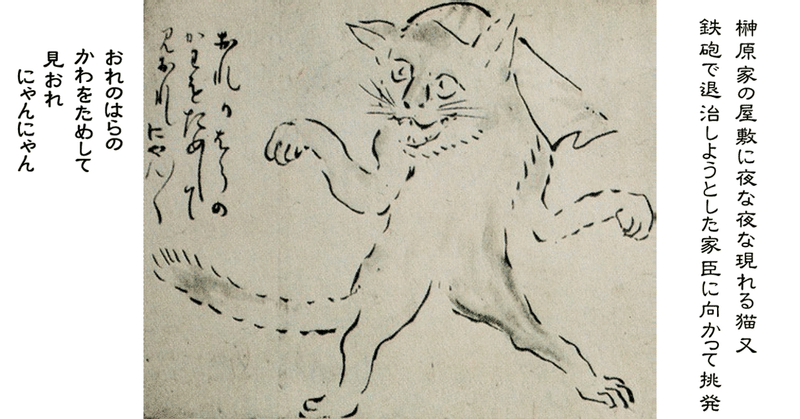 榊原家の屋敷に夜な夜な現れる猫又
鉄砲で退治しようとした家臣に向かって挑発
おれのはらの
かわをためして
見おれ にやん〱
おれのはらの
かわをためして
見おれ
にゃんにゃん